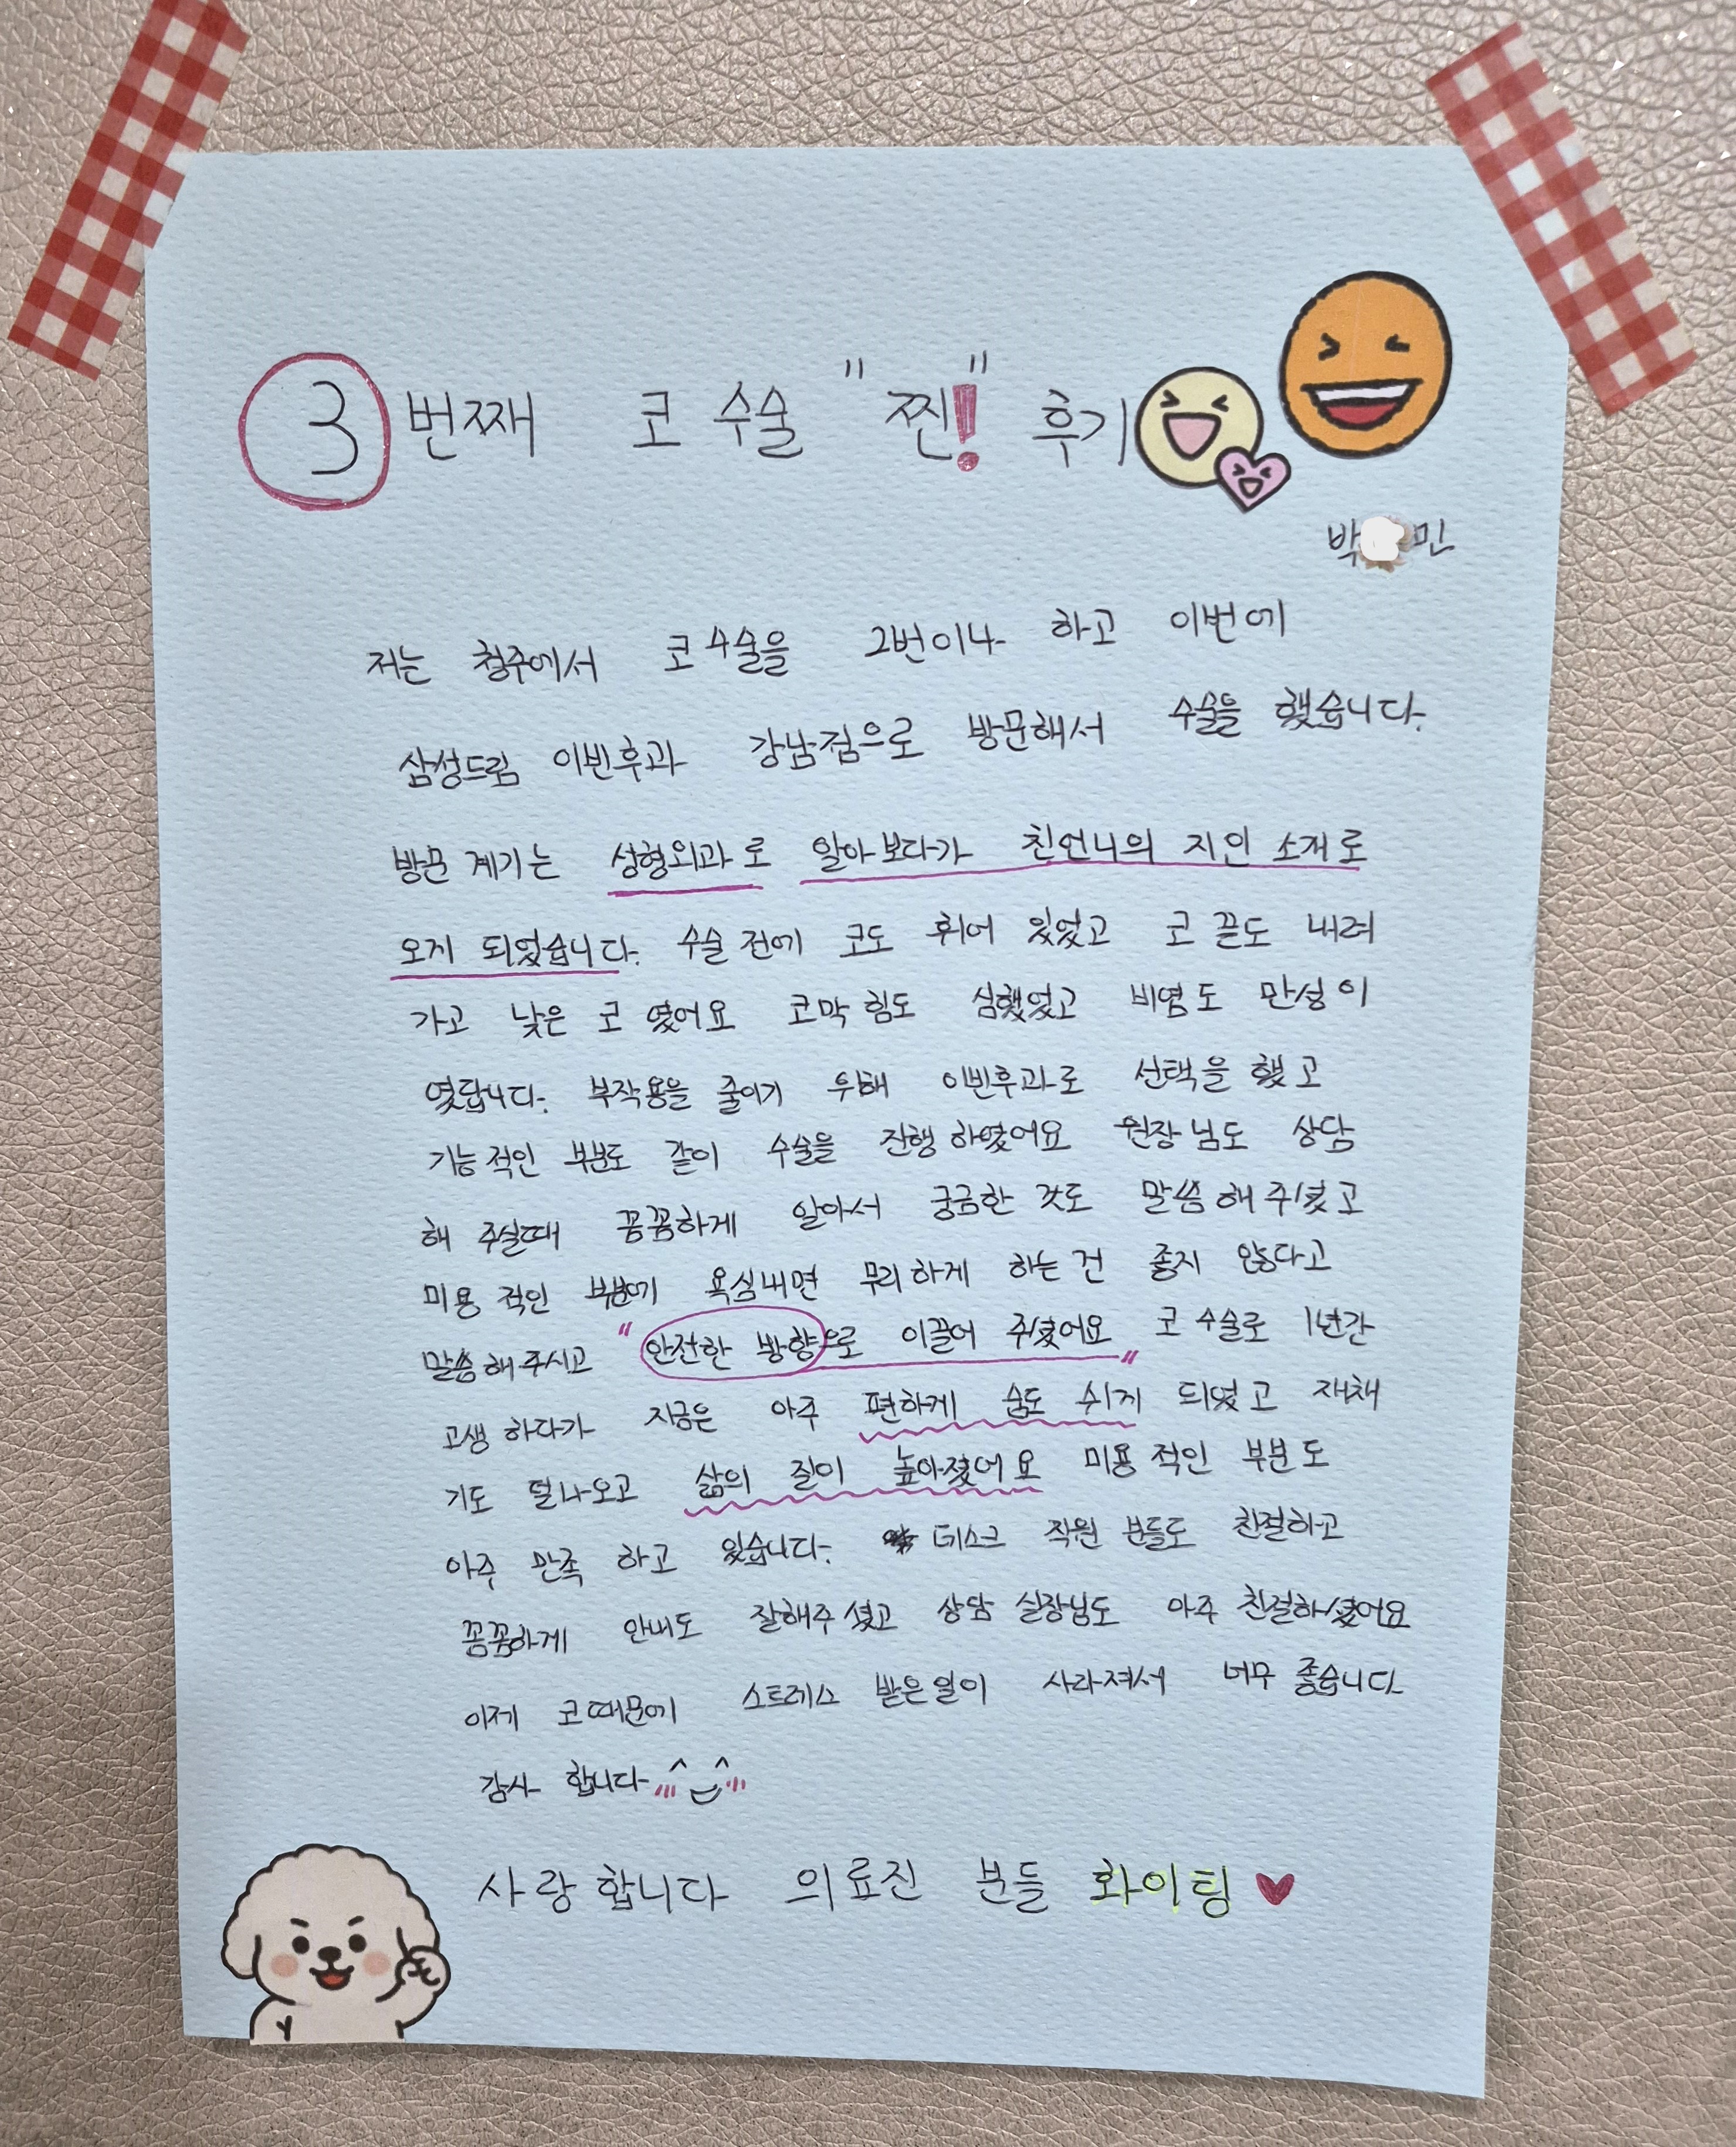 3번째 코 수술 "찐!" 후기
박 민
저는 청주에서 코수술을 2번이나 하고 이번에
삼성드림 이빈후과 강남점으로 방문해서 수술을 했습니다.
방문 계기는 성형외과로 알아보다가 친언니의 지인 소개로
오게 되었습니다. 수술 전에 코도 휘어 있었고 코 끝도 내려
가고 낮은 코 였어요 코막힘도 심했었고 비염도 만성이
였답니다. 부작용을 줄이기 위해 이빈후과로 선택을 했고
기능적인 부분도 같이 수술을 진행하였어요 원장님도 상담
해 주실때 꼼꼼하게 알아서 궁금한 것도 말씀해주셨고
미용적인 부분에 욕심내면 무리하게 하는건 좋지 않다고
말씀해주시고 "안전한 방향으로 이끌어 주셨어요" 코 수술로 1년간
고생하다가 지금은 아주 편하게 숨도 쉬게 되었고 재채
기도 덜나오고 삶의 질이 높아졌어요 미용적인 부분도
아주 만족 하고 있습니다. 데스크 직원 분들도 친절하고
꼼꼼하게 안내도 잘해주셨고 상담 실장님도 아주 친절하셨어요
이제 코때문에 스트레스 받은일이 사라져서 너무 좋습니다
감사 합니다
사랑합니다 의료진 분들 화이팅♥